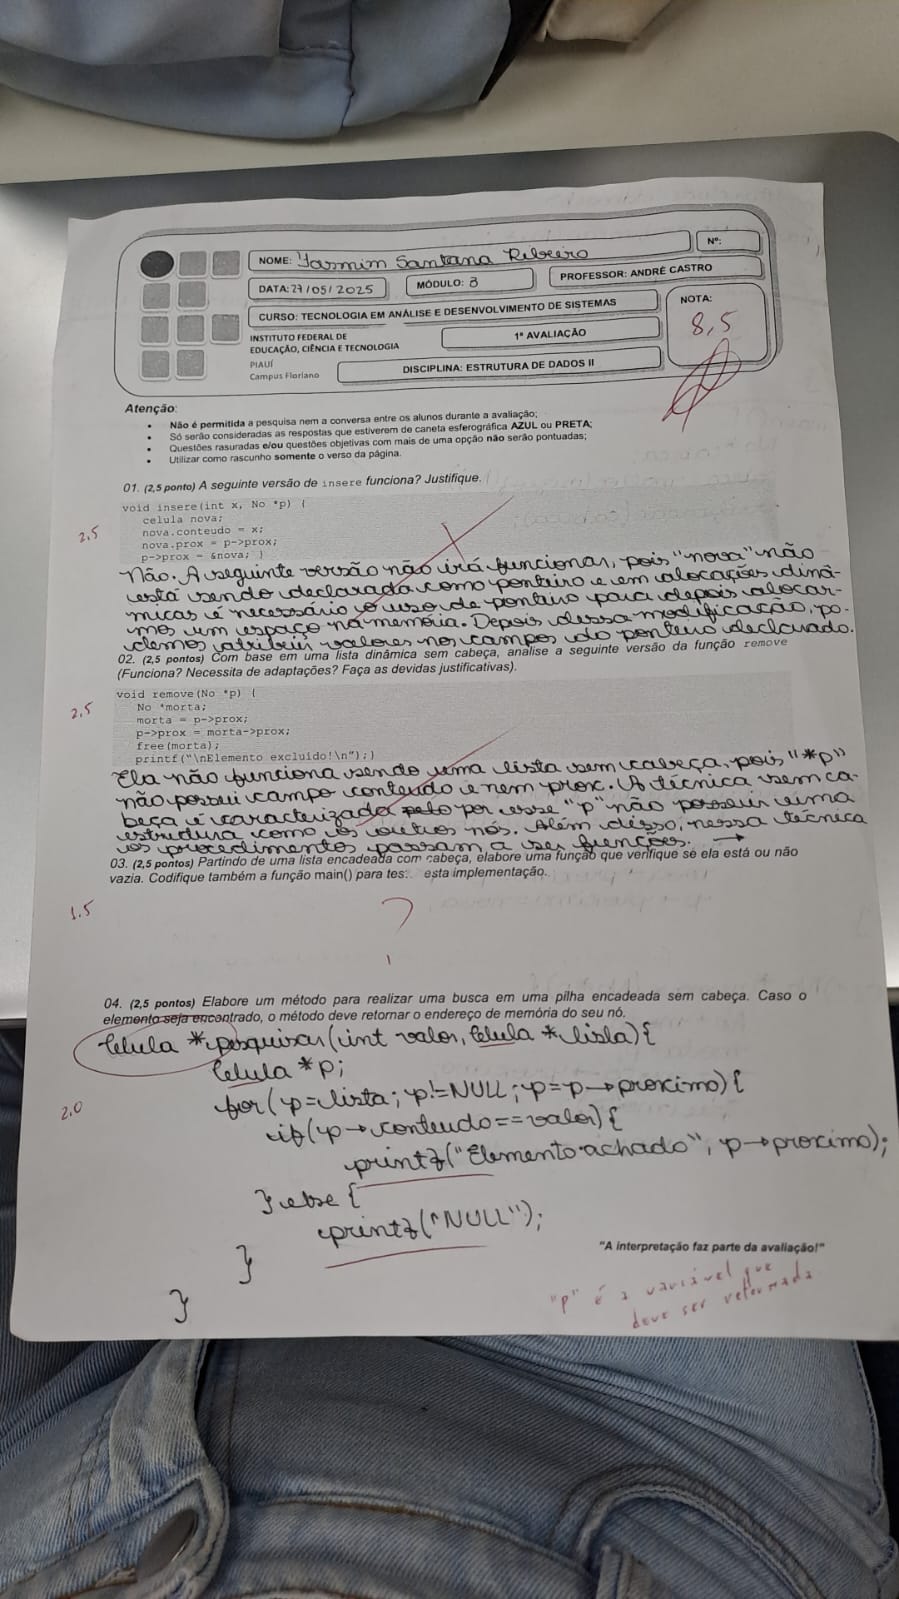 NOME: Yasmim Santana Ribeiro
Nº:
DATA: 27/05/2025
MÓDULO: 3
PROFESSOR: ANDRÉ CASTRO
CURSO: TECNOLOGIA EM ANÁLISE E DESENVOLVIMENTO DE SISTEMAS
NOTA:
8,5
INSTITUTO FEDERAL DE
EDUCAÇÃO, CIÊNCIA E TECNOLOGIA
PIAUÍ
Campus Floriano
1ª AVALIAÇÃO
DISCIPLINA: ESTRUTURA DE DADOS II
Atenção:
• Não é permitida a pesquisa nem a conversa entre os alunos durante a avaliação;
• Só serão consideradas as respostas que estiverem de caneta esferográfica AZUL ou PRETA;
• Questões rasuradas e/ou questões objetivas com mais de uma opção não serão pontuadas;
• Utilizar como rascunho somente o verso da página.
01. (2,5 ponto) A seguinte versão de insere funciona? Justifique.
2,5
void insere(int x, No *p) {
celula nova;
nova.conteudo = x;
nova.prox = p->prox;
p->prox = &nova; }
Não. A seguinte versão não irá funcionar, pois "nova" não
está sendo declarada como ponteiro e em alocações dinâ-
micas é necessário o uso de ponteiro para depois alocar-
mos um espaço na memória. Depois dessa modificação, po-
demos atribuir valores nos campos do ponteiro declarado.
02. (2,5 pontos) Com base em uma lista dinâmica sem cabeça, analise a seguinte versão da função remove
(Funciona? Necessita de adaptações? Faça as devidas justificativas).
2,5
void remove(No *p) {
No *morta;
morta = p->prox;
p->prox = morta->prox;
free(morta);
printf("\nElemento excluído!\n");}
Ela não funciona sendo uma lista sem cabeça, pois "*p"
não possui campo conteudo e nem prox. A técnica sem ca-
beça é caracterizada por esse "p" não possuir uma
estrutura como os outros nós. Além disso, nessa técnica
os procedimentos passam a ser funções. →
03. (2,5 pontos) Partindo de uma lista encadeada com cabeça, elabore uma função que verifique se ela está ou não
vazia. Codifique também a função main() para tes. esta implementação.
1.5
?
04. (2,5 pontos) Elabore um método para realizar uma busca em uma pilha encadeada sem cabeça. Caso o
elemento seja encontrado, o método deve retornar o endereço de memória do seu nó.
Celula *pesquisar(int valor, Celula *lista){
Celula *p;
for(p=lista; p!=NULL; p=p→proximo){
2.0
if(p→conteudo==valor){
printf("Elemento achado", p→proximo);
}else{
printf("NULL");
}
}
"A interpretação faz parte da avaliação!"
"p" é a variável que
deve ser retornada